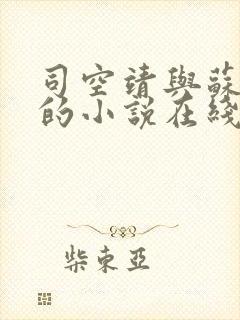 司空靖與蘇
的小說在綫
柴東亞